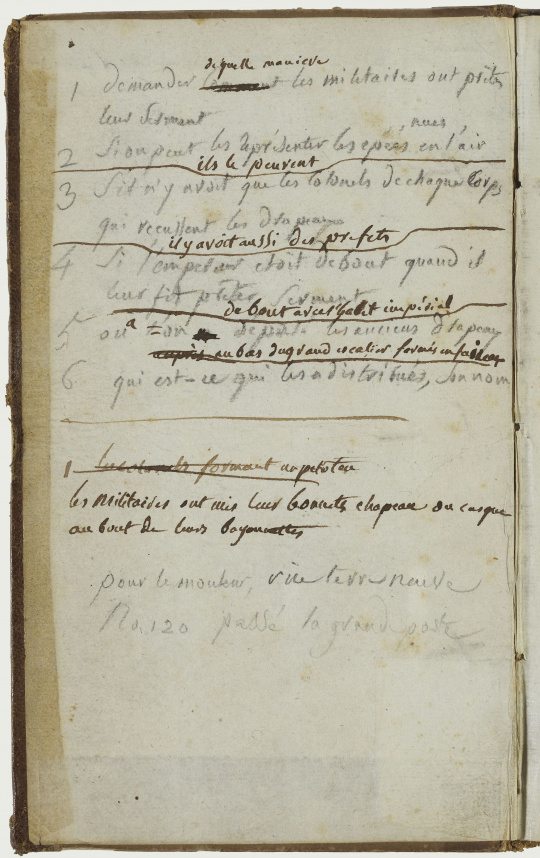 de quelle maniere
1 demander comment les militaires ont prêté
leur serment
nues,
2 Si on peut les représenter les epées en l'air
ils le peuvent
3 S'il n'y avoit que les Colonels de chaque Corps
qui recussent les drapeaux
il y avoit aussi des prefets
4 Si l'empereur etoit debout quand il
leur fit prêter serment
de bout avec l'habit impérial
5 ou a t-on deposé les anciens drapeau
auprès au bas du grand escalier formés en faisceau
6 qui est-ce qui les a distribués, son nom
1 les colonels formant un peloton
les Militaires ont mis leur bonnets chapeau ou casque
au bout de leurs bayonnettes
pour le mouleur, rue terre neuve
No. 120 passé la grand poste